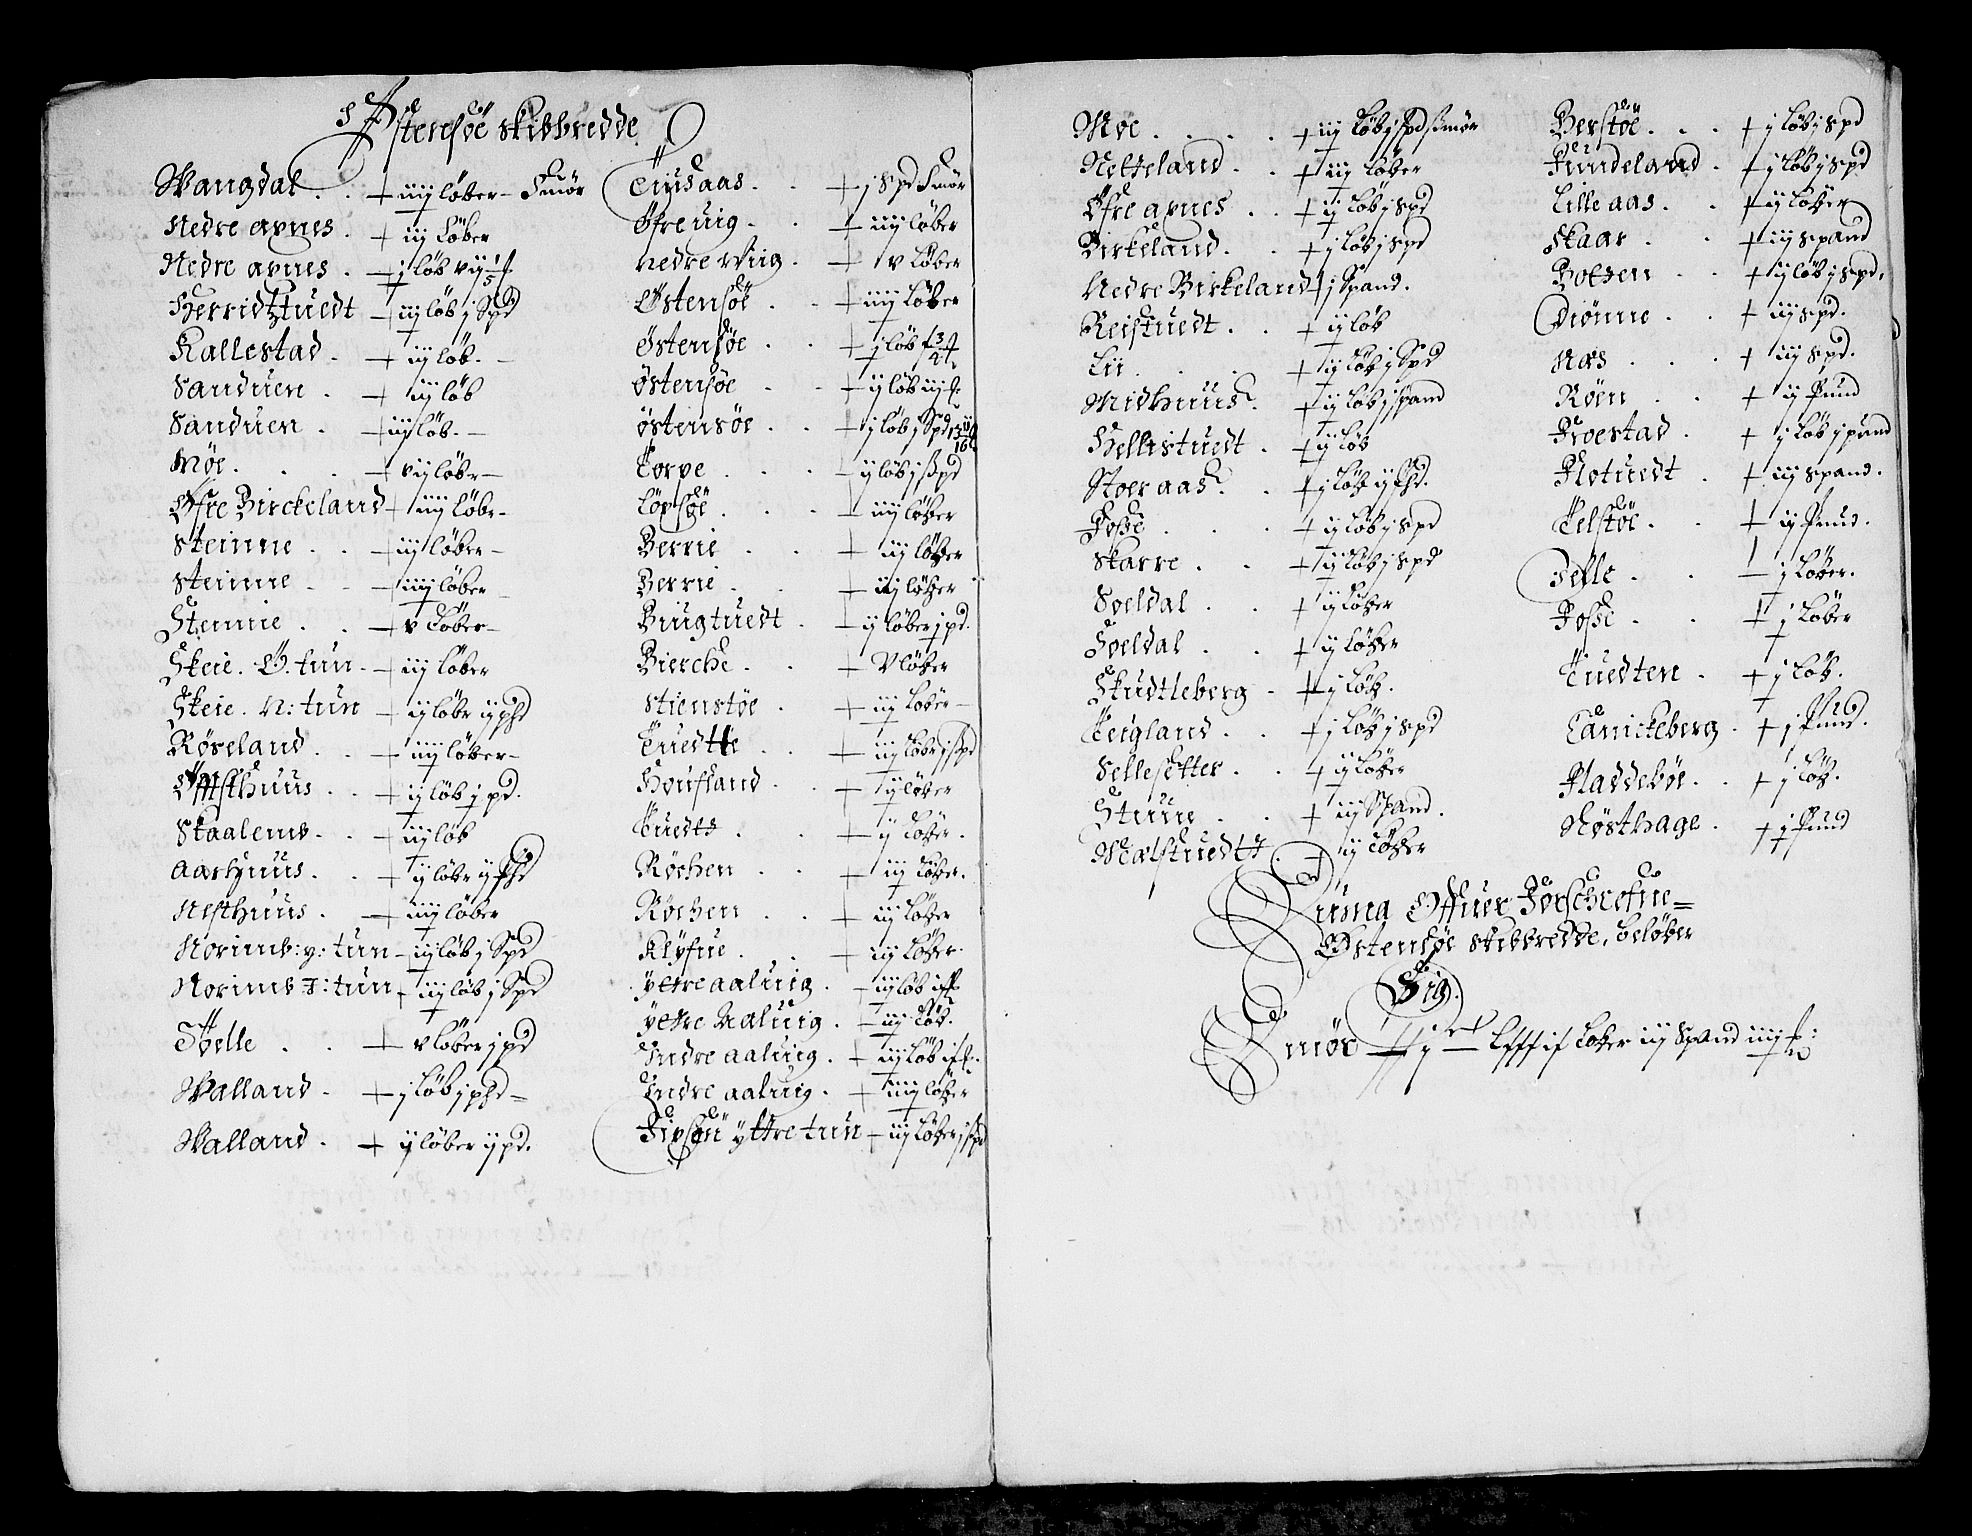 Østensøe skibbredde
Wangdal . . iiij løber - Smør
Nedre axnes . iij Løber
Nedre axnes . j løb
Herridtztuedt iij løb j Spd
Kallestad . iij løb.
Sanduen . iij løb
Sanduen . iij løb.
Møe . . . vij løbr
Øfre Birckeland iiij løbr
Steinne . . iij løber
Steinne . . iiij løber
Stenne . . v Løber
Skeie. Ø. tun. iij løber
Skeie. N: tun ij løbr ij phd
Røseland . iiij løber
huus . . ij løb j pd.
Skaalems . . iij løb
Aarhuus . . ij løbr ij phd
Nesthuus . iiij løber
Norimb: y: tun iij løb j Spd
Norimb I: tun iij løb j Spd
Tvelle . . v løber j pd
Walland . j løb j phd
Walland . ij løber ij pd.
Eiusaas . . j spd Smør
Øfre uig . . iiij løber
Nedre Wiig . v Løber
Østensøe . . iiij løber
Østensøe . . j løb
Østensøe . . ij løb iij
Østensøe . . j løb j Spd
Torpe . . . ij løb j spd
Løssøe . . . iiij løber
Berrie . . iij løber
Berrie . . løber
Biugtuedt . ij løber j pd.
Bierche . . V løber
Stienstøe . iij Løber
Tuedtte . . iij løbr j spd
Housland . . ij løber
Tuedtt . . ij Løber.
Røchen . . iij Løber.
Røchen . . iij Løber
Klyfue . . iij Løber.
Yttre aaluiig . iij løb
Yttre Aaluiig . iij løb.
Indre aaluig . iij løb
Indre aaluig . iiij løber
Fixsen yttre tun iij løber j spd
Moe . . . . iij løb j spd smør
Netteland . . iij Løber
Øfre axnes . . ij løb j spd
Birkeland . . j løb j spd
Nedre Birkeland j Spand.
Reistuedt . . ij løb
Lii . . . . ij løb j Spd
Midhuus . ij løb j spand
Hellistuedt . ij løb
Stoeraas . . j løb ij phd.
Fosse . . . ij løb j spd
Skarre . . ij løb j spd
Soeldal . . ij løber
Soeldal . . ij løber
Skudtleberg . j løb.
Teigland . . j løb j spd
Sellesetter . . ij løber
Stuue . . iij Spand.
Mælstuedtt . ij Løber
Berstøe . . . j løb j spd
Sundeland . j løb j spd
Lille aas . . ij løber
Skaar . . iij spand
Botsen . . ij løb j spd.
Diønne . . iij spd.
Næs . . . iij spd.
Røen . . ij Pund
Broestad . j løb j pund
Flotuedt . iij spand.
Telstøe . . ij Pund.
Selle . . j Løber.
Fosse . . j Løber
Tuedten . j løb.
Canickeberg . j Pund.
Fladdebøe . . j løb.
Nøsthage . j Pund
Suma Offuer Forschrefne
Østensøe skibbredde, beløber
Sig.
Smør Løber iij Spand iiij